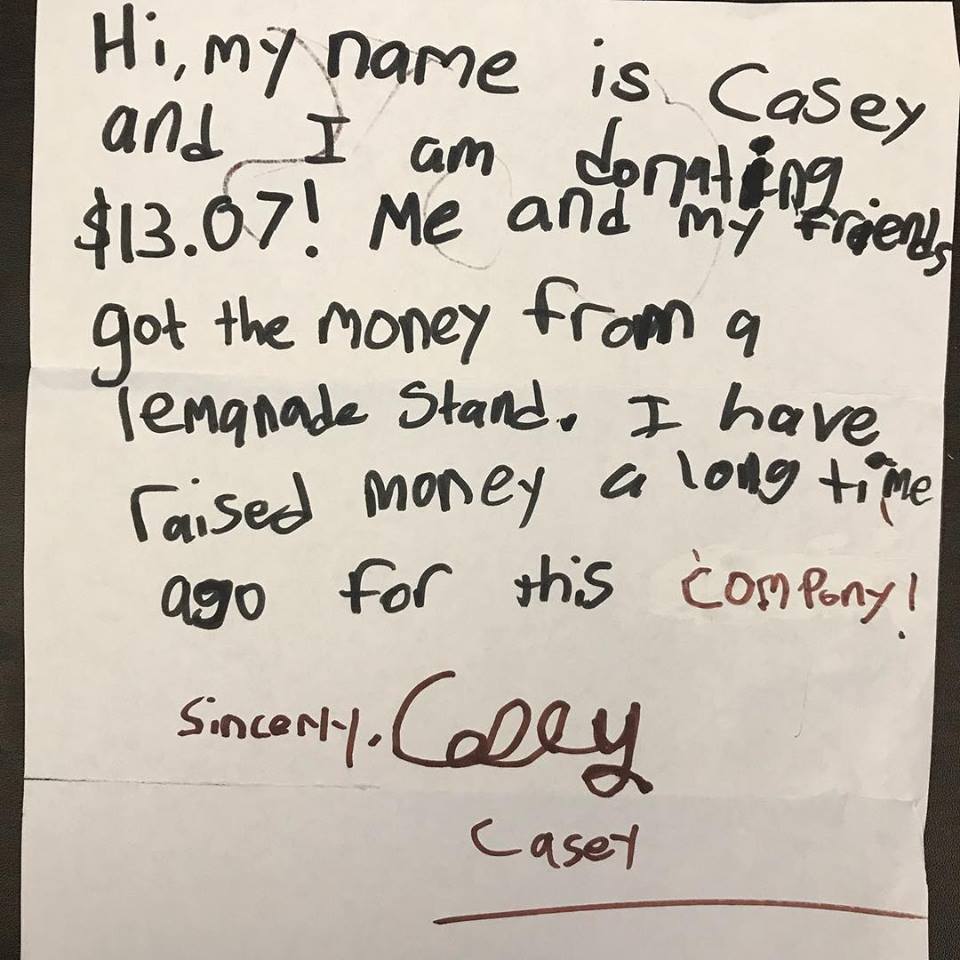 Hi, my name is Casey
and I am donating
$13.07! Me and my friends
got the money from a
lemanade stand. I have
raised money a long time
ago for this company!
Sincerly, Casey
Casey